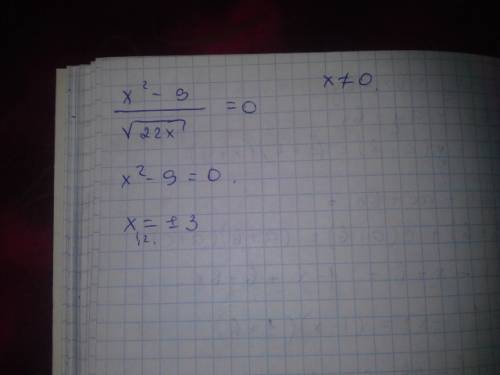 x² - 9 / √22x = 0
x ≠ 0.
x² - 9 = 0.
x₁,₂. = ±3